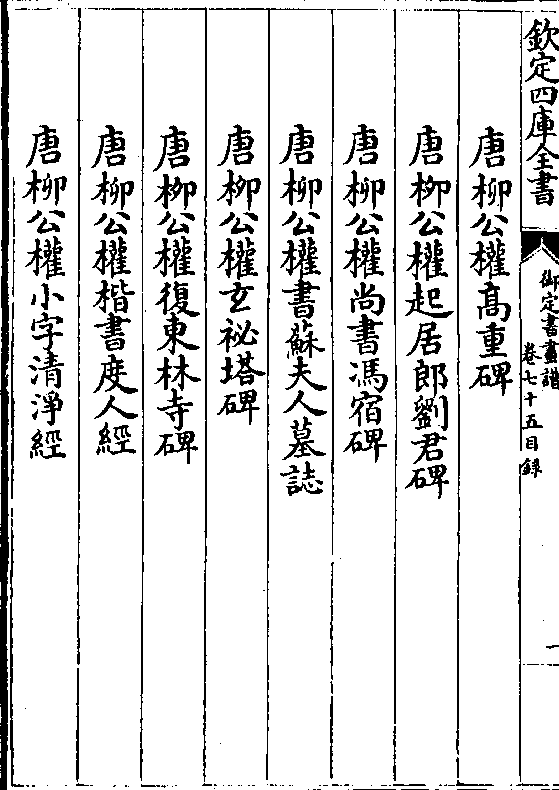 欽定四庫全書
御定書畫譜
卷七十五目錄
一
唐柳公權高重碑
唐柳公權起居郎劉君碑
唐柳公權尚書馮宿碑
唐柳公權書蘇夫人墓誌
唐柳公權玄祕塔碑
唐柳公權復東林寺碑
唐柳公權楷書度人經
唐柳公權小字清淨經